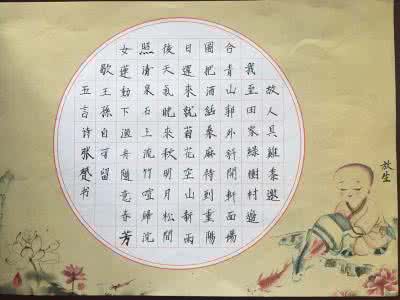 故人具雞黍邀
我至田家綠樹村邊
合青山郭外斜開軒面場
圃把酒話桑麻待到重陽
日還來就菊花空山新雨
後天氣晚來秋明月松間
照清泉石上流竹喧歸浣
女蓮動下漁舟隨意春芳
歇王孫自可留
五言诗张书
放生